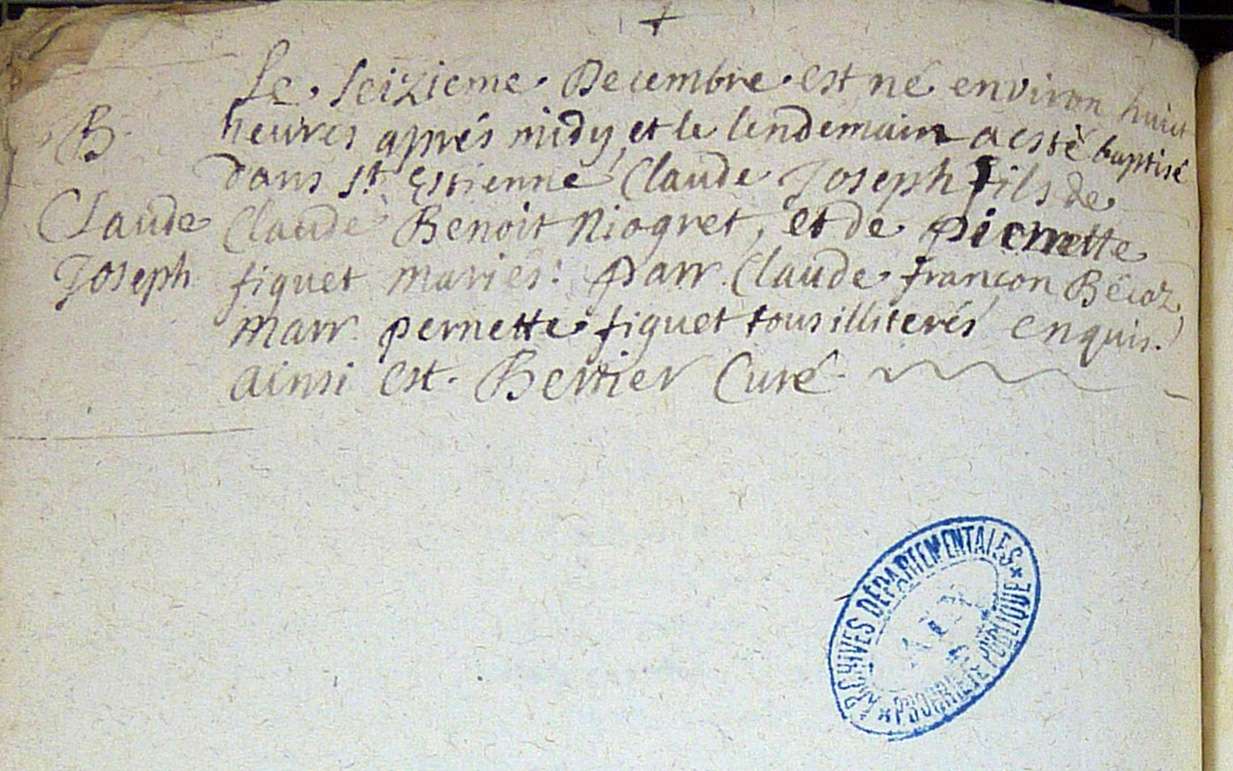 Le seizieme Decembre est né environ huict
B. heures aprés midy, et le lendemain a esté baptisé
dans st Estienne, Claude Joseph fils de
Claude Claude Benoit Niogret, et de pierrette
Joseph figuet mariés: parr. Claude françon Bécoz,
marr. pernette figuet tous illiterés enquis.
ainsi est. Bertier Curé
ARCHIVES DÉPARTEMENTALES
AIN
PROPRIÉTÉ PUBLIQUE